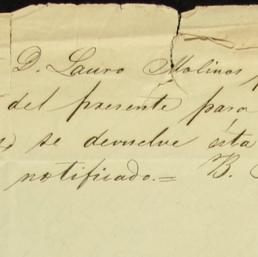 D. Lauro Molinos
del presente para
se devuelve esta
notificado.= B.